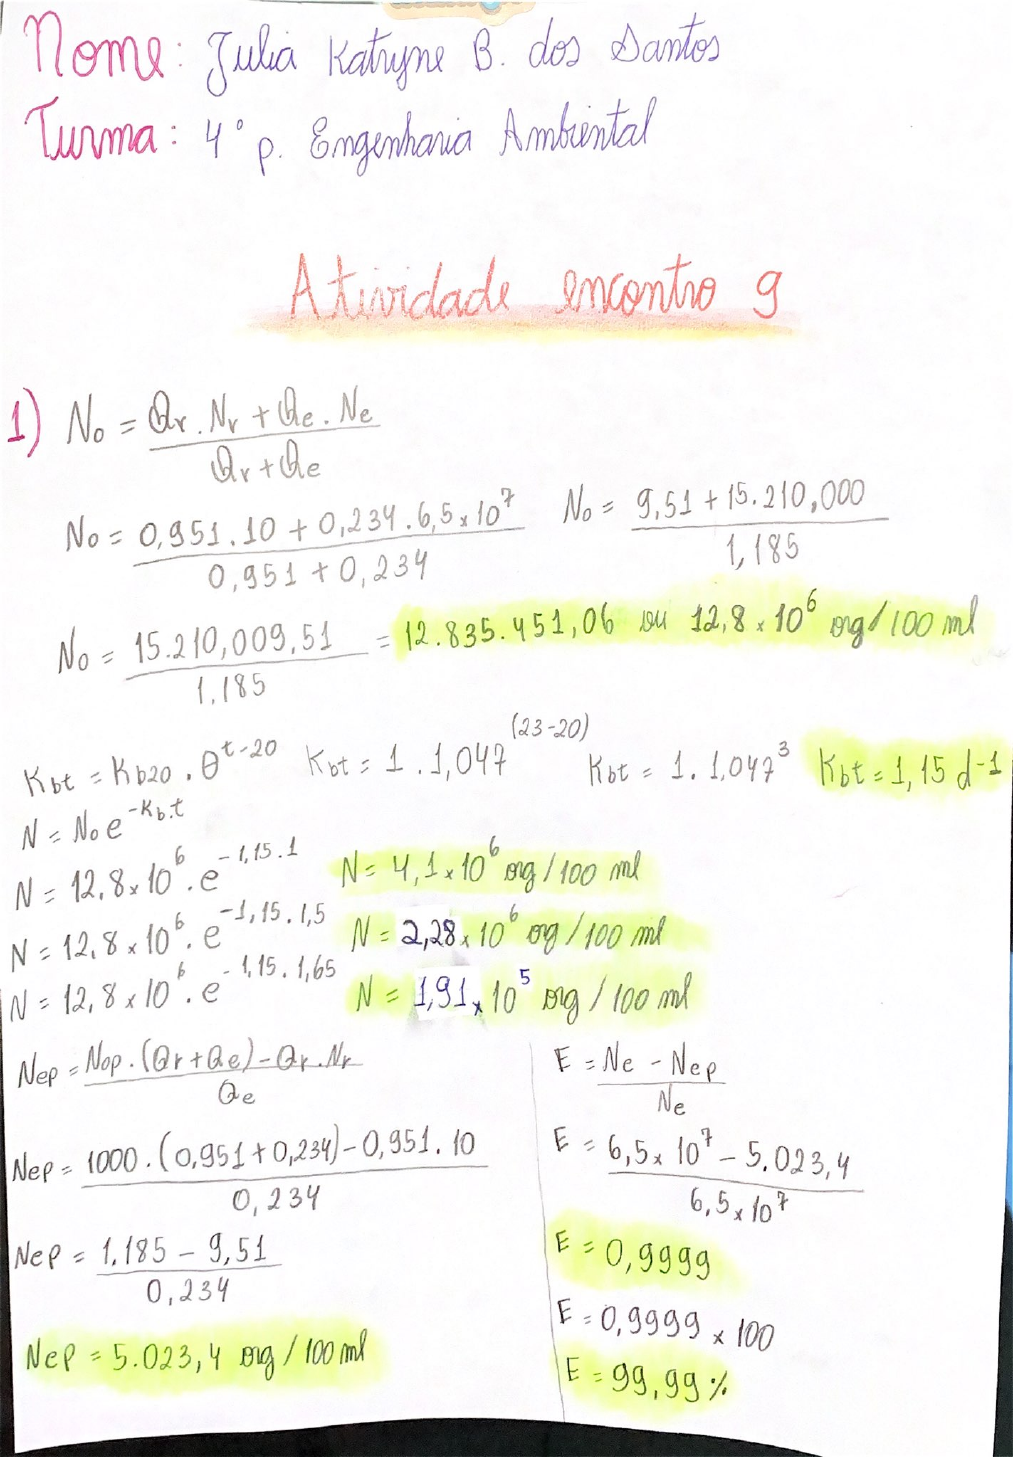 Nome: Julia Katryne B. dos Santos
Turma: 4° p. Engenharia Ambiental
Atividade encontro 9
1) No = Qr . Nr + Qe . Ne
Qr + Qe
No = 0,951 . 10 + 0,234 . 6,5 x 10^7
0,951 + 0,234
No = 9,51 + 15.210,000
1,185
No = 15.210,009,51 = 12.835.451,06 ou 12,8 x 10^6 org/100 ml
1,185
Kbt = Kb20 . θ^t-20 Kbt = 1 . 1,047^(23-20) Kbt = 1 . 1,047^3 Kbt = 1,15 d^-1
N = No e^-Kb.t
N = 12,8 x 10^6 . e^-1,15 . 1 N = 4,1 x 10^6 org/100 ml
N = 12,8 x 10^6 . e^-1,15 . 1,5 N = 2,28 x 10^6 org/100 ml
N = 12,8 x 10^6 . e^-1,15 . 1,65 N = 1,91 x 10^5 org/100 ml
Nep = Nop . (Qr + Qe) - Qr . Nr
Qe
Nep = 1000 . (0,951 + 0,234) - 0,951 . 10
0,234
Nep = 1.185 - 9,51
0,234
Nep = 5.023,4 org/100 ml
E = Ne - Nep
Ne
E = 6,5 x 10^7 - 5.023,4
6,5 x 10^7
E = 0,9999
E = 0,9999 x 100
E = 99,99 %